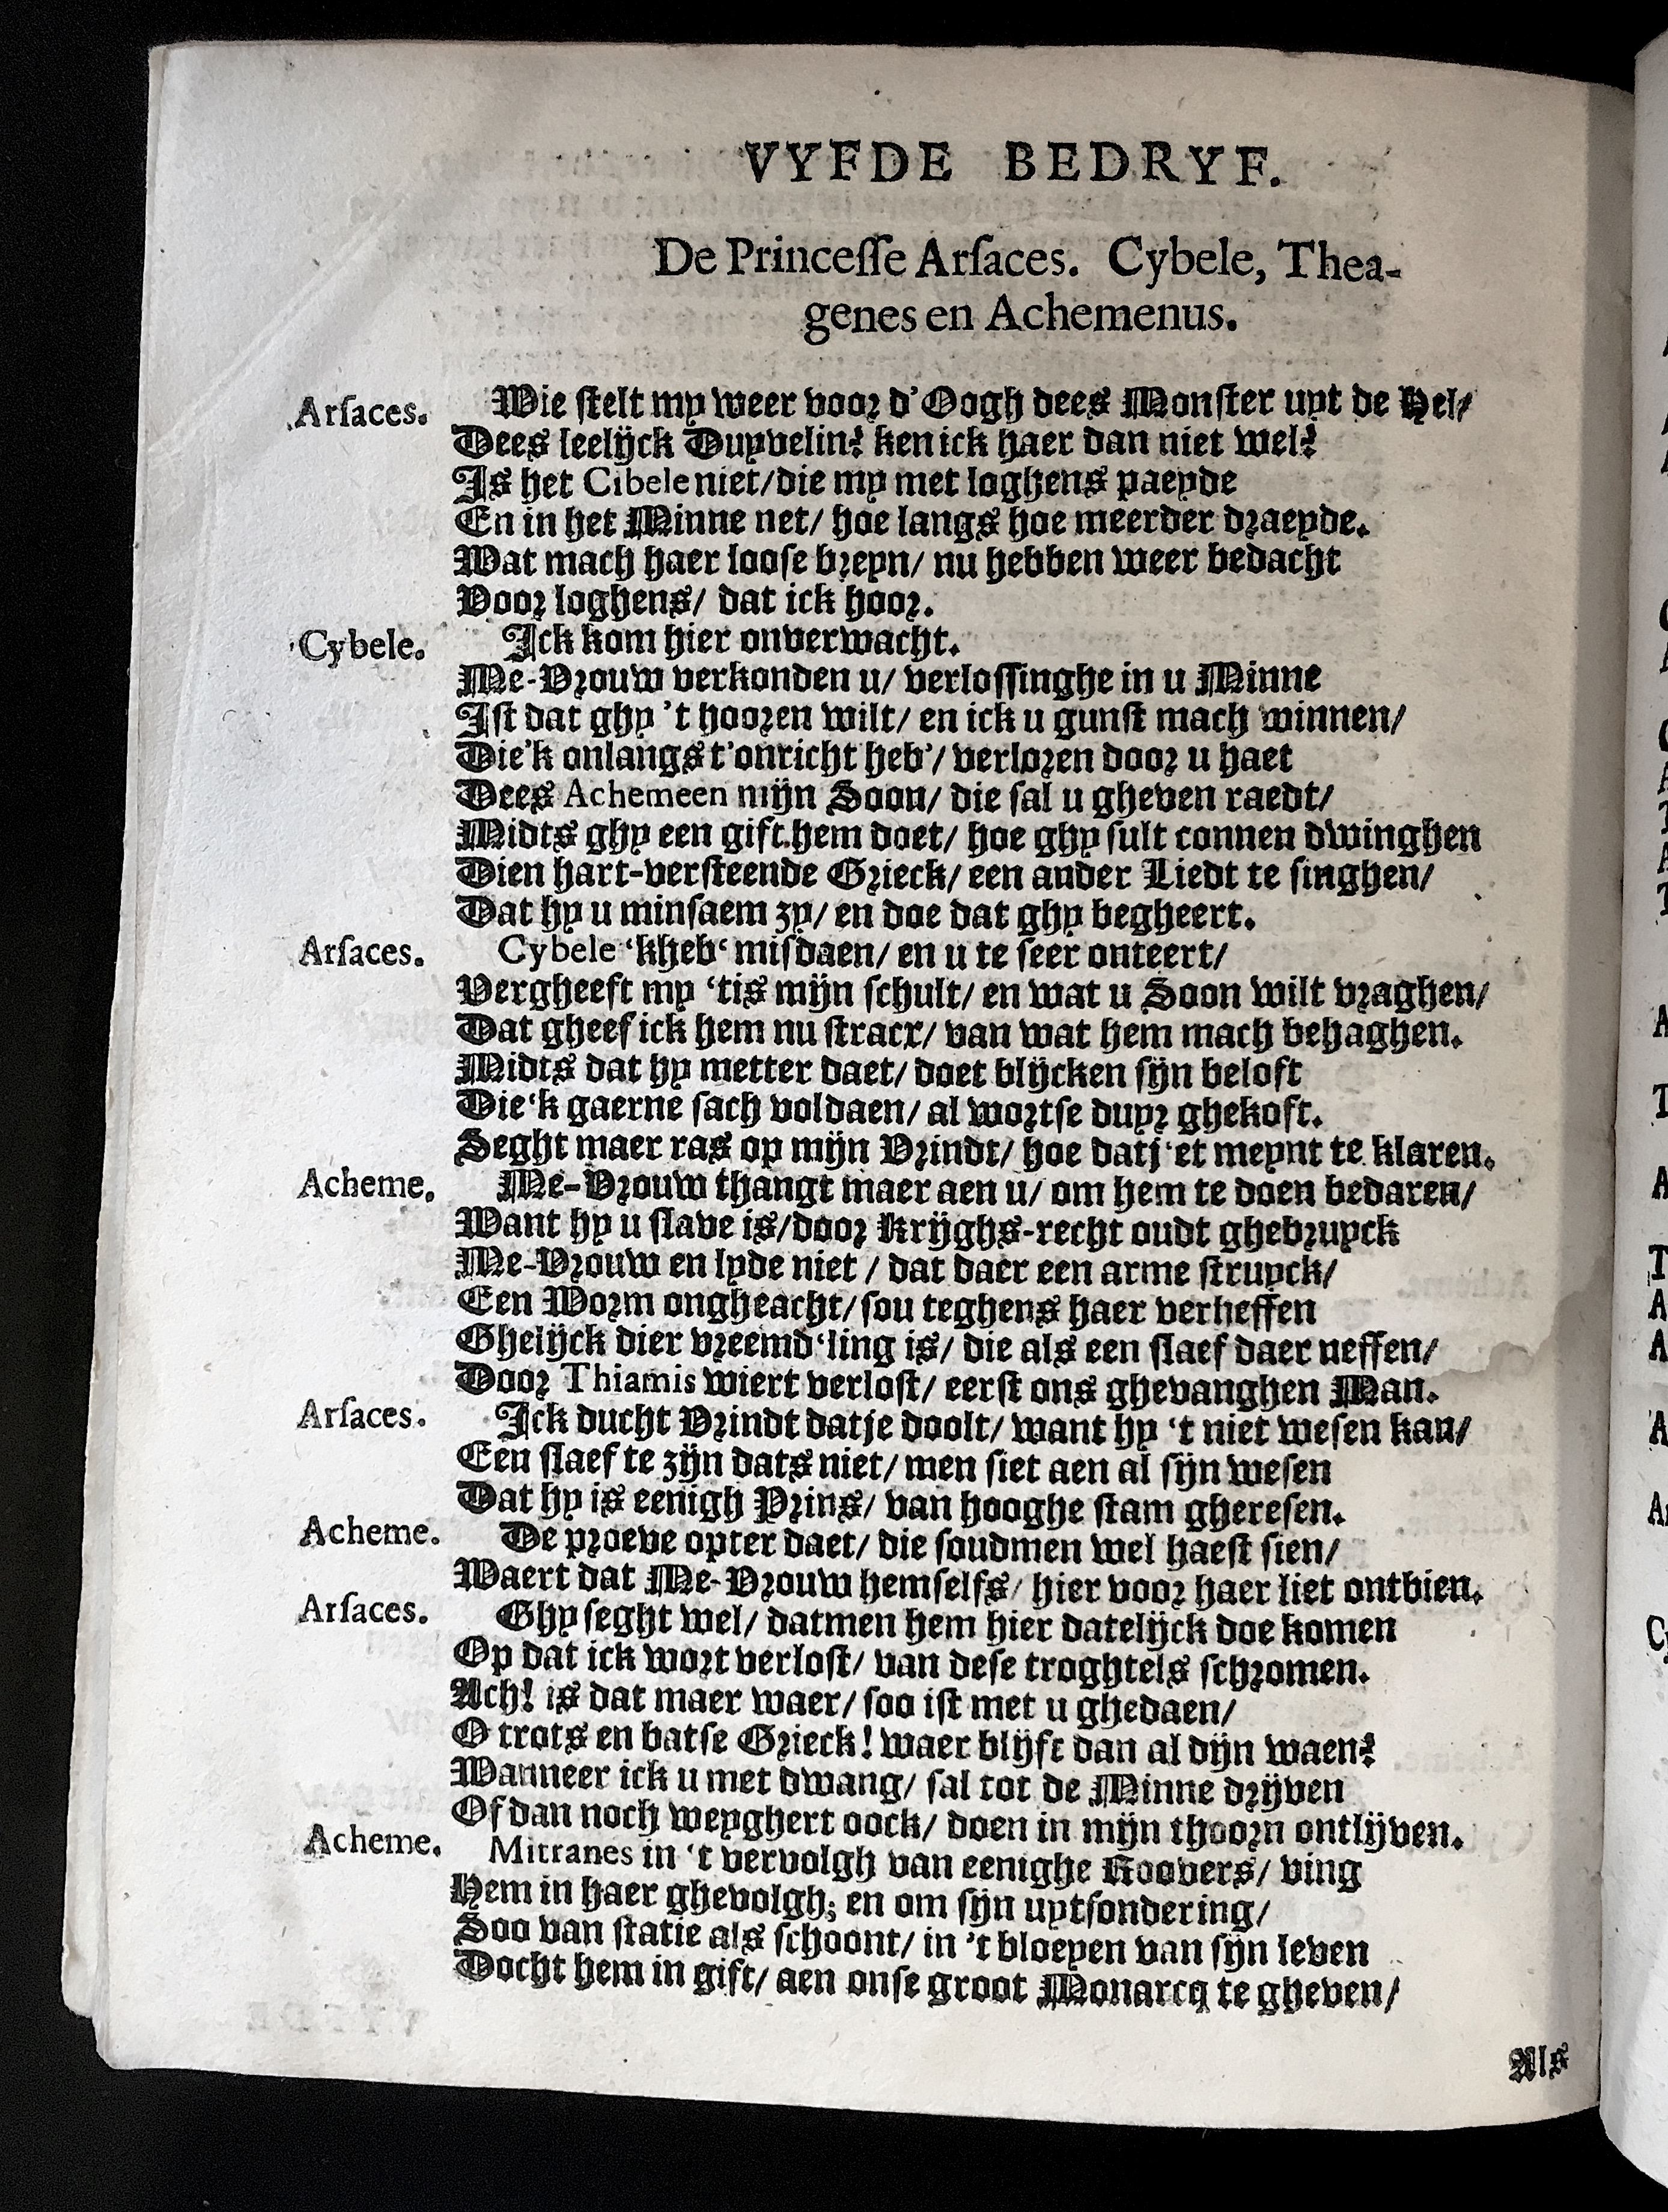 VYFDE BEDRYF.
De Princeſſe Arſaces. Cybele, Thea-
genes en Achemenus.
Arſaces. Wie ſtelt my weer voor d'Oogh dees Monſter uyt de Hel/
Dees leelijck Duyvelin? ken ick haer dan niet wel?
Is het Cibele niet/ die my met loghens paeyde
En in het Minne net/ hoe langs hoe meerder draeyde.
Wat mach haer looſe breyn/ nu hebben weer bedacht
Voor loghens/ dat ick hoor.
Cybele. Ick kom hier onverwacht.
Me-Vrouw verkonden u/ verloſſinghe in u Minne
Iſt dat ghy 't hooren wilt/ en ick u gunſt mach winnen/
Die'k onlangs t'onricht heb'/ verloren door u haet
Dees Achemeen mijn Soon/ die ſal u gheven raedt/
Midts ghy een gift hem doet/ hoe ghy ſult connen dwinghen
Dien hart-verſteende Grieck/ een ander Liedt te ſinghen/
Dat hy u minſaem zy/ en doe dat ghy begheert.
Arſaces. Cybele ‘kheb‘ miſdaen/ en u te ſeer onteert/
Vergheeft my ‘tis mijn ſchult/ en wat u Soon wilt vraghen/
Dat gheef ick hem nu ſtracx/ van wat hem mach behaghen.
Midts dat hy metter daet/ doet blijcken ſijn beloft
Die‘k gaerne ſach voldaen/ al wortſe duyr ghekoft.
Seght maer ras op mijn Vrindt/ hoe datj‘et meynt te klaren.
Acheme. Me-Vrouw thangt maer aen u/ om hem te doen bedaren/
Want hy u ſlave is/ door Krijghs-recht oudt ghebruyck
Me-Vrouw en lyde niet / dat daer een arme ſtruyck/
Een Worm ongheacht/ ſou teghens haer verheffen
Ghelijck dier vreemd‘ling is/ die als een ſlaef daer neffen/
Door Thiamis wiert verloſt/ eerſt ons ghevanghen Man.
Arſaces. Ick ducht Vrindt datje doolt/ want hy ‘t niet weſen kan/
Een ſlaef te zijn dats niet/ men ſiet aen al ſijn weſen
Dat hy is eenigh Prins/ van hooghe ſtam ghereſen.
Acheme. De proeve opter daet/ die ſoudmen wel haeſt ſien/
Waert dat Me-Vrouw hemſelfs/ hier voor haer liet ontbien.
Arſaces. Ghy ſeght wel/ datmen hem hier datelijck doe komen
Op dat ick wort verloſt/ van deſe troghtels ſchromen.
Ach! is dat maer waer/ ſoo iſt met u ghedaen/
O trots en batſe Grieck! waer blijft dan al dijn waen?
Wanneer ick u met dwang/ ſal tot de Minne drijven
Of dan noch weyghert oock/ doen in mijn thoorn ontlijven.
Acheme. Mitranes in ‘t vervolgh van eenighe Roovers/ ving
Hem in haer ghevolgh; en om ſijn uytſondering/
Soo van ſtatie als ſchoont/ in 't bloeyen van ſijn leven
Docht hem in gift/ aen onſe groot Monarcq te gheven/
Als